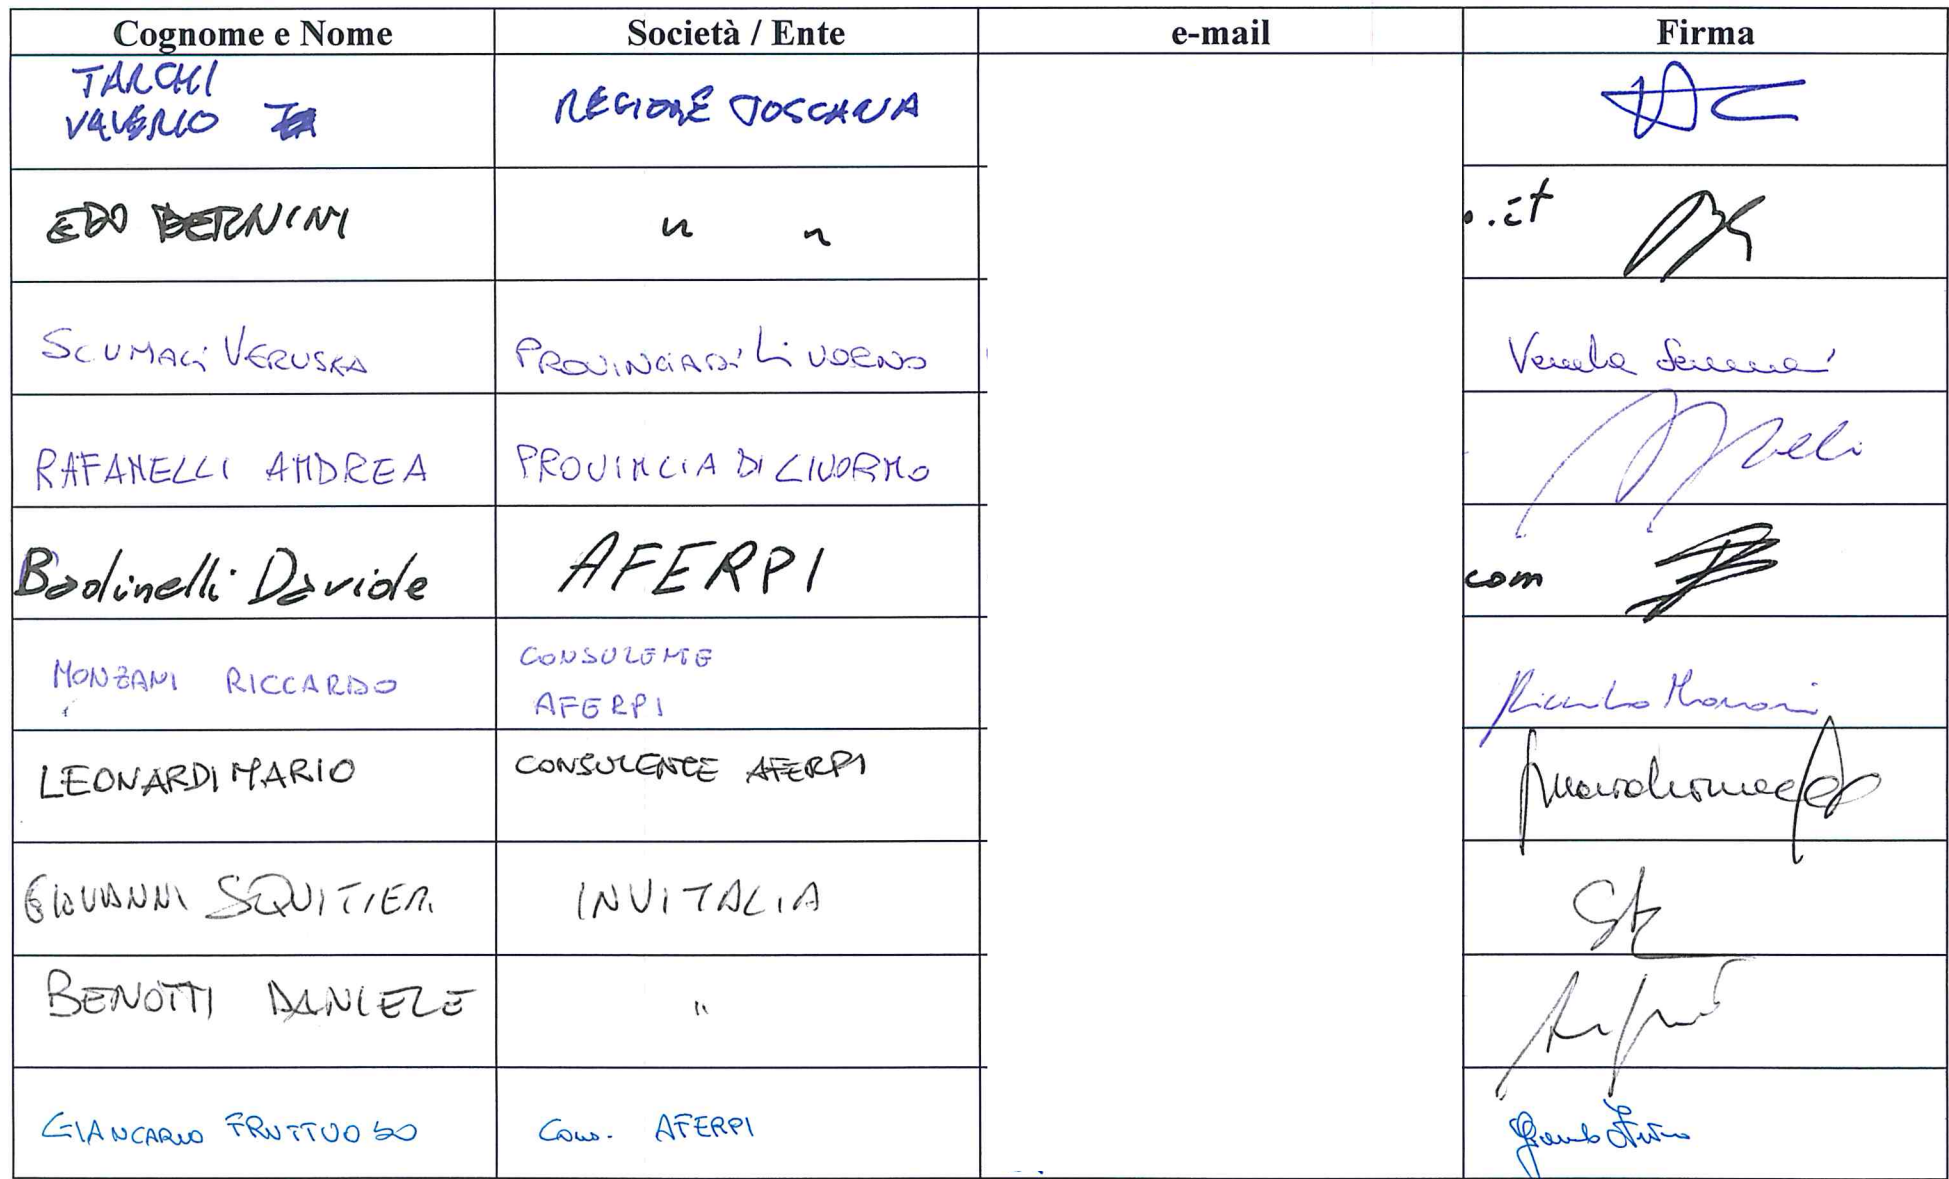 Cognome e Nome Società / Ente e-mail Firma
TARCHI
VALERIO REGIONE TOSCANA
EDO BERNINI " " .it
SCUMACI VERUSKA PROVINCIA DI LIVORNO
RAFANELLI ANDREA PROVINCIA DI LIVORNO
Badinelli Davide AFERPI com
MONZANI RICCARDO CONSULENTE
AFERPI
LEONARDI MARIO CONSULENTE AFERPI
GIOVANNI SQUITIERI INVITALIA
BENOTTI DANIELE "
GIANCARLO FRUTTUOSO Cons. AFERPI